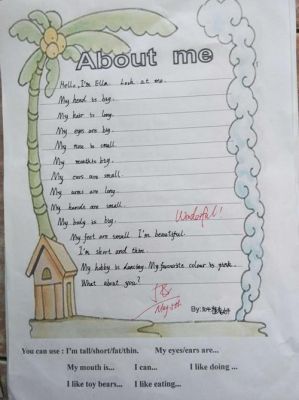 About me
Hello, I'm Ella. Look at me.
My head is big.
My hair is long.
My eyes are big.
My nose is small.
My mouth is big.
My ears are small.
My arms are long.
My hands are small.
My body is big.
Wonderful!
My feet are small. I'm beautiful.
I'm short and thin.
My hobby is dancing. My favourite colour is pink.
What about you?
May 5th
By:
You can use : I'm tall/short/fat/thin. My eyes/ears are...
My mouth is... I can... I like doing ...
I like toy bears... I like eating...